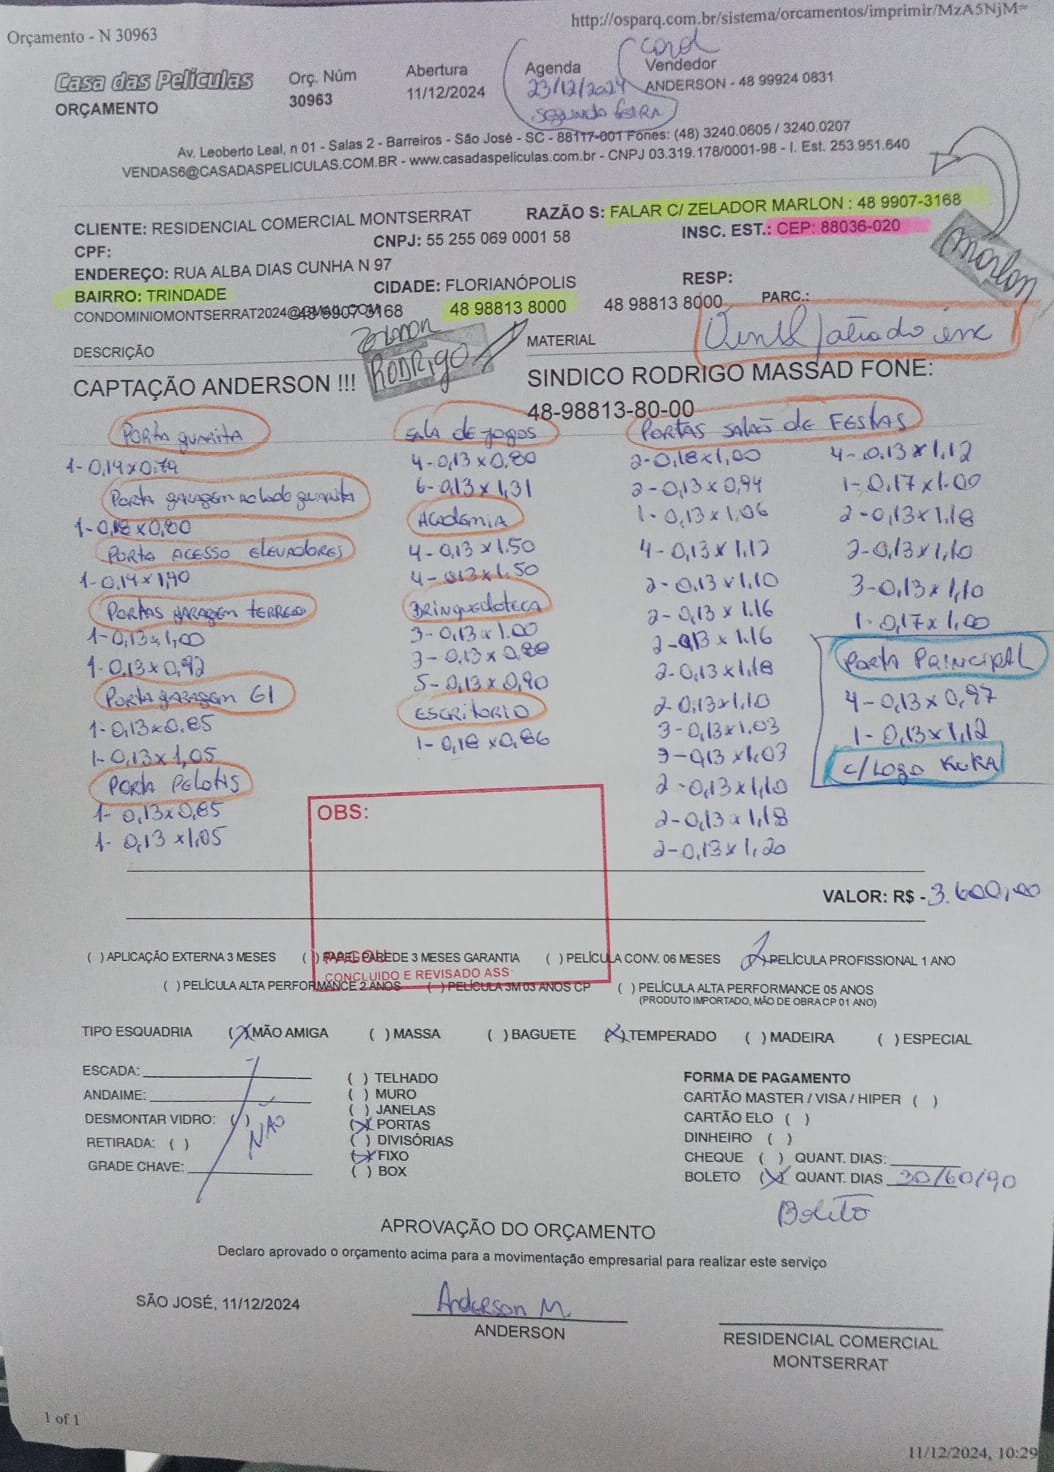 Orçamento - N 30963
http://osparq.com.br/sistema/orcamentos/imprimir/MzA5NjM=
Casa das Películas
ORÇAMENTO
Orç. Núm
30963
Abertura
11/12/2024
Agenda
23/12/2024
Segunda feira
Carol
Vendedor
ANDERSON - 48 99924 0831
Av. Leoberto Leal, n 01 - Salas 2 - Barreiros - São José - SC - 88117-001 Fones: (48) 3240.0605 / 3240.0207
VENDAS6@CASADASPELICULAS.COM.BR - www.casadaspeliculas.com.br - CNPJ 03.319.178/0001-98 - I. Est. 253.951.640
CLIENTE: RESIDENCIAL COMERCIAL MONTSERRAT
RAZÃO S: FALAR C/ ZELADOR MARLON : 48 9907-3168
CPF:
CNPJ: 55 255 069 0001 58
INSC. EST.: CEP: 88036-020
Marlon
ENDEREÇO: RUA ALBA DIAS CUNHA N 97
BAIRRO: TRINDADE
CIDADE: FLORIANÓPOLIS
RESP:
CONDOMINIOMONTSERRAT2024@GMAIL.COM
48 9907 3168
48 98813 8000
48 98813 8000
PARC.:
RODRIGO
DESCRIÇÃO
MATERIAL
CAPTAÇÃO ANDERSON !!!
SINDICO RODRIGO MASSAD FONE:
48-98813-80-00
PORTA guarita
1-0,14x0,79
Porta garagem ao lado guarita
1-0,18x0,80
PORTA ACESSO ELEVADORES
1-0,14x1,40
PORTAS GARAGEM TERREO
1-0,13x1,00
1-0,13x0,92
PORTA GARAGEM G1
1-0,13x0,85
1-0,13x1,05
PORTA PELOTIS
1-0,13x0,85
1-0,13x1,05
SALA de jogos
4-0,13x0,80
6-0,13x1,31
ACADEMIA
4-0,13x1.50
4-0,13x1.50
BRINQUEDOTECA
3-0,13x1.00
3-0,13x0,80
5-0,13x0,90
ESCRITORIO
1-0,18x0,86
PORTAS SALÃO de FESTAS
2-0,18x1,00
2-0,13x0,94
1-0,13x1,06
4-0,13x1,12
2-0,13x1,10
2-0,13x1.16
2-0,13x1.16
2-0,13x1,18
2-0,13x1,10
3-0,13x1,03
3-0,13x1,03
2-0,13x1,10
2-0,13x1,18
2-0,13x1,20
4-0,13x1,12
1-0,17x1.00
2-0,13x1,18
2-0,13x1,10
3-0,13x1,10
1-0,17x1,00
PORTA PRINCIPAL
4-0,13x0,97
1-0,13x1,12
C/ Logo KUKA
OBS:
VALOR: R$ -3.600,00
( ) APLICAÇÃO EXTERNA 3 MESES ( ) PAPEL PAREDE 3 MESES GARANTIA ( ) PELÍCULA CONV. 06 MESES (X) PELÍCULA PROFISSIONAL 1 ANO
PAGOU
CONCLUIDO E REVISADO ASS
( ) PELÍCULA ALTA PERFORMANCE 2 ANOS ( ) PELÍCULA 3M 03 ANOS CP ( ) PELÍCULA ALTA PERFORMANCE 05 ANOS
(PRODUTO IMPORTADO, MÃO DE OBRA CP 01 ANO)
TIPO ESQUADRIA (X) MÃO AMIGA ( ) MASSA ( ) BAGUETE (X) TEMPERADO ( ) MADEIRA ( ) ESPECIAL
ESCADA:
ANDAIME:
DESMONTAR VIDRO: ( )
RETIRADA: ( )
GRADE CHAVE:
NÃO
( ) TELHADO
( ) MURO
( ) JANELAS
(X) PORTAS
( ) DIVISÓRIAS
(X) FIXO
( ) BOX
FORMA DE PAGAMENTO
CARTÃO MASTER / VISA / HIPER ( )
CARTÃO ELO ( )
DINHEIRO ( )
CHEQUE ( ) QUANT. DIAS:
BOLETO (X) QUANT. DIAS 30/60/90
Boleto
APROVAÇÃO DO ORÇAMENTO
Declaro aprovado o orçamento acima para a movimentação empresarial para realizar este serviço
SÃO JOSÉ, 11/12/2024
Anderson M.
ANDERSON
RESIDENCIAL COMERCIAL
MONTSERRAT
1 of 1
11/12/2024, 10:29